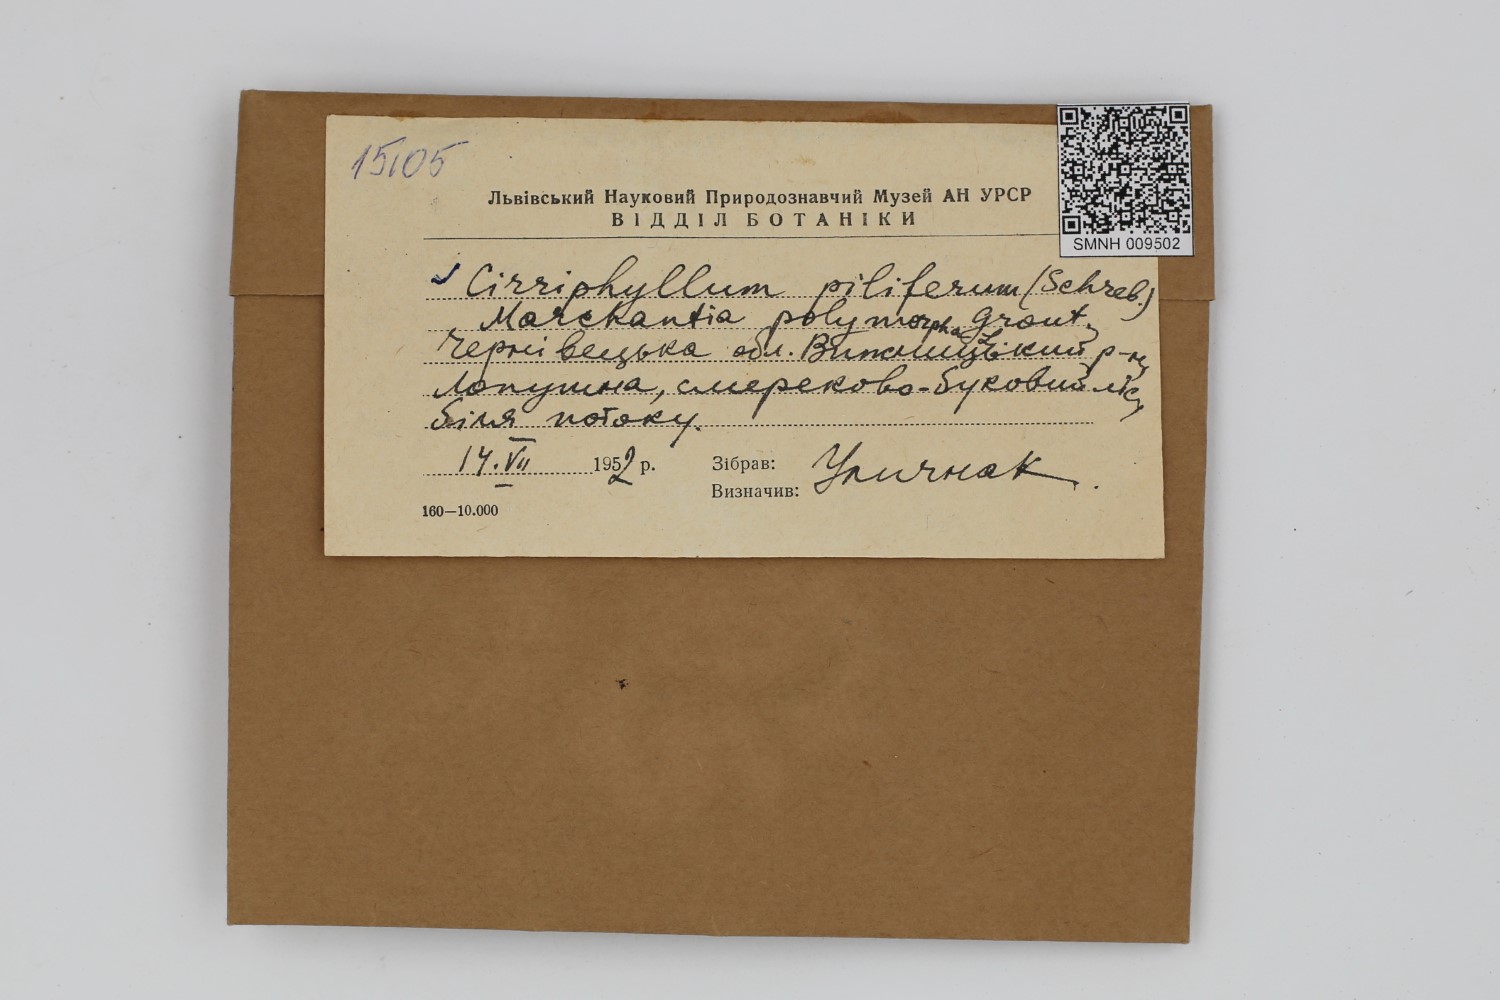 15105
Львівський Науковий Природознавчий Музей АН УРСР
ВІДДІЛ БОТАНІКИ
SMNH 009502
✓ Cirriphyllum piliferum (Schreb.)
Marchantia polymorpha L. Grout,
Чернівецька обл. Вижницький р-н,
Лопушна, смереково-буковий ліс,
біля потоку.
14.VII 1952 р.
Зібрав: Улична К.
Визначив:
160—10.000